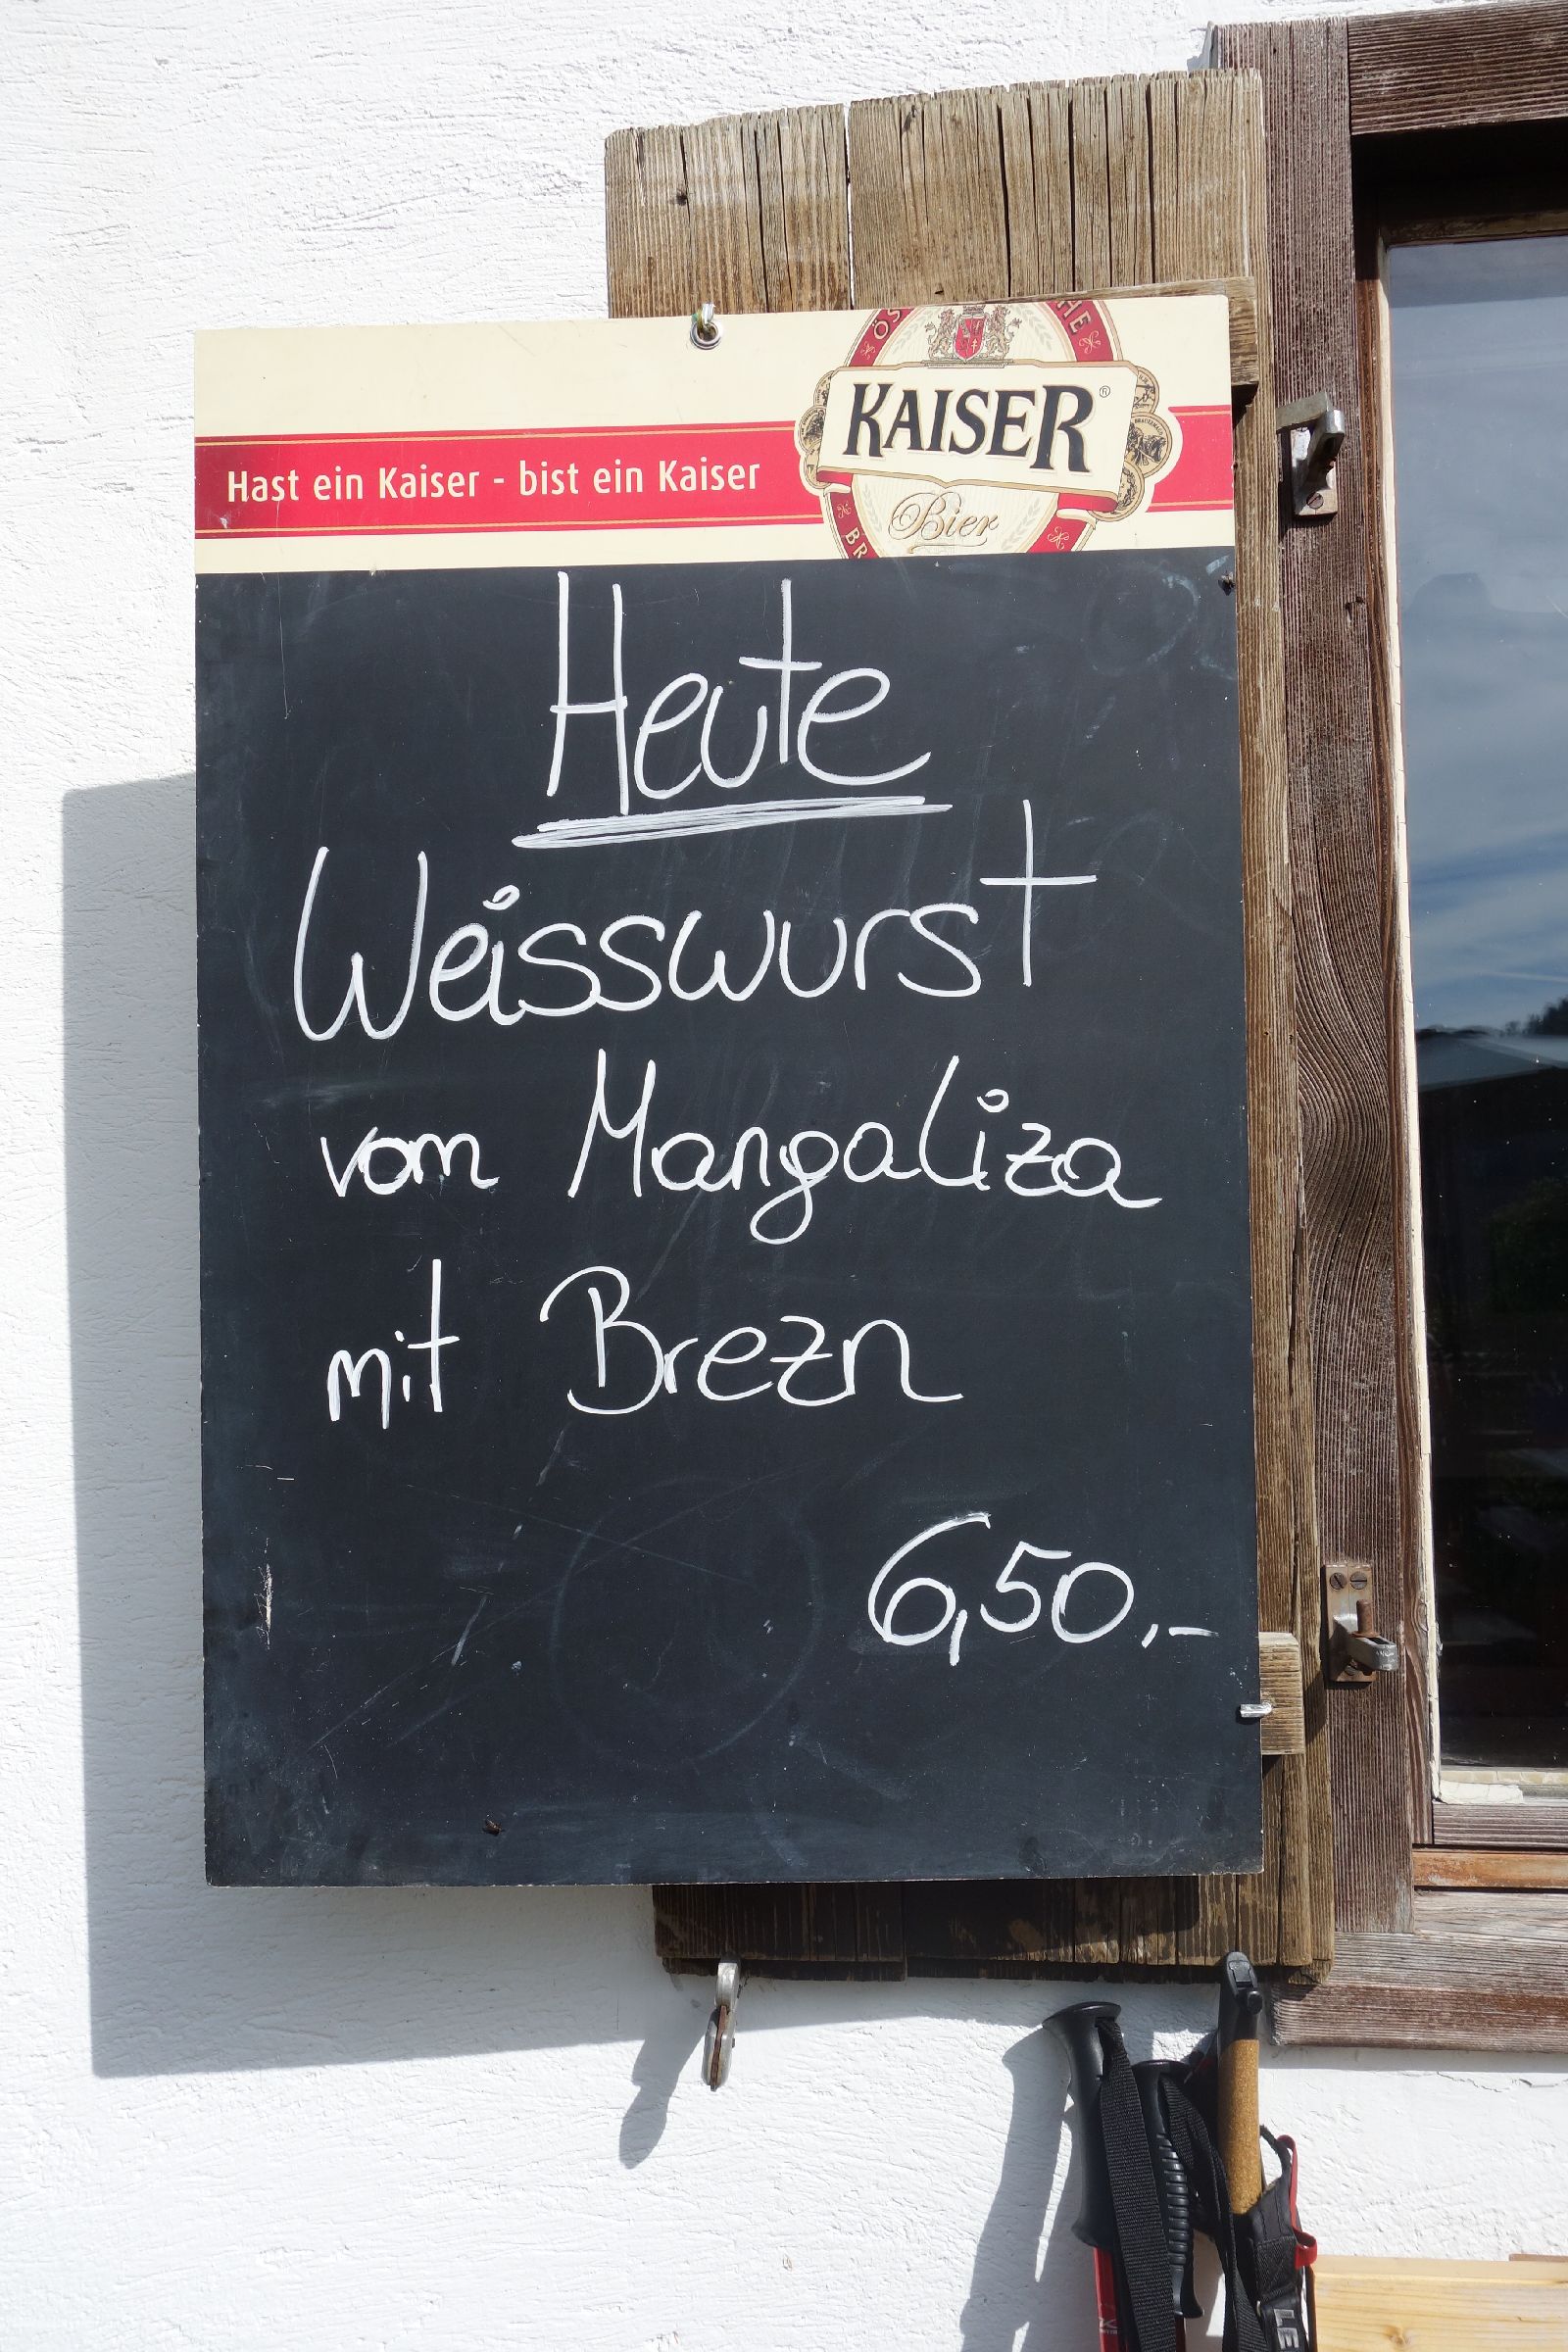 KAISER
Hast ein Kaiser - bist ein Kaiser
Bier
Heute
Weisswurst
vom Mangaliza
mit Brezn
6,50,-
LE